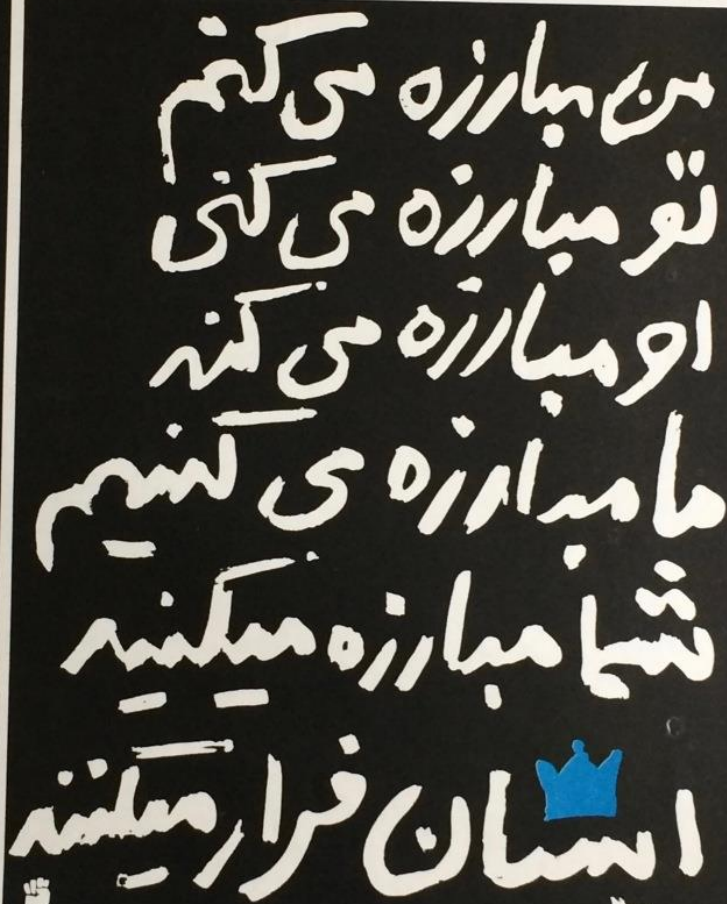 من مبارزه می کنم
تو مبارزه می کنی
او مبارزه می کند
ما مبارزه می کنیم
شما مبارزه میکنید
ایشان فرار میکنند